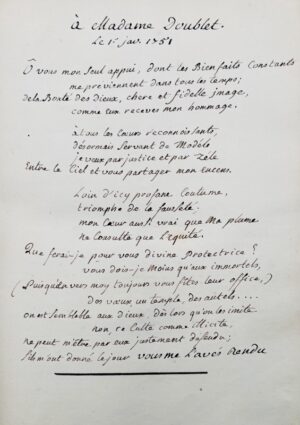 à Madame Doublet.
Le 1r jav. 1751
Ô vous mon seul appui, dont les Bienfaits Constants
me previennent dans tous les temps;
de la Bonté des Dieux, chere et fidelle jmage,
comme eux recevez mon hommage.
à tous les Cœurs reconnoissants,
désormais Servant de Modéle
je veux par justice et par Zéle
Entre le Ciel et vous partager mon encens.
Loin d'icy profane Coutume,
triomphe de la fausseté.
mon Cœur aussi vrai que Ma plume
ne Consulte que L'equité.
Que ferai-je pour vous divine Protectrice?
vous dois-je Moins qu'aux immortels,
(Puisqu'en vers moy toujours vous fites leur office,)
Des vœux, un temple, des autels....
on est Semblable aux dieux, dès lors qu'on les imite
non, ce Culte comme illicite,
ne peut m'être par eux justement défendu;
S'ils m'ont donné le jour vous me L'avés Rendu